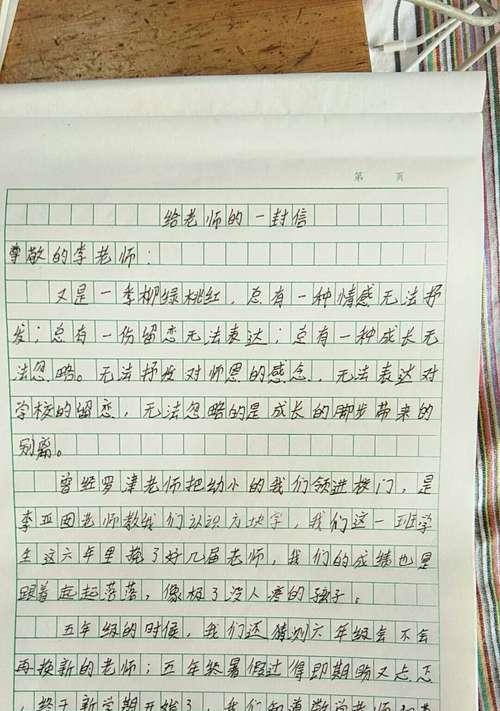 第 页
给老师的一封信
尊敬的李老师：
又是一季柳绿桃红，总有一种情感无法抒
发；总有一份留恋无法表达；总有一种成长无
法忽略。无法抒发对师恩的感念，无法表达对
学校的留恋，无法忽略的是成长的脚步带来的
别离。
曾经罗津老师把幼小的我们领进校门，是
李亚 老师教我们认识方块字，我们这一班学
生这六年里换了好几届老师，我们的成绩也是
跟着起起落落，像极了没人疼的孩子。
五年级的时候，我们还猜测六年级会不会
再换新的老师；五年终暑假过得即期盼又忐忑
，终于新学期开始了，我们知道